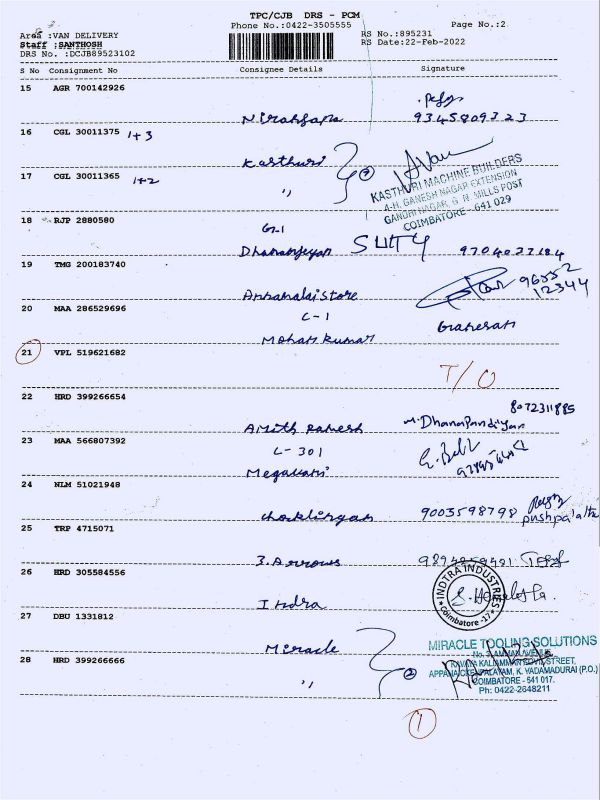 TPC/CJB DRS - PCM
Phone No.:0422-3505555 Page No.:2
Area :VAN DELIVERY RS No.:895231
Staff :SANTHOSH RS Date:22-Feb-2022
DRS No. :DCJB89523102
S No Consignment No Consignee Details Signature
15 AGR 700142926
9345809323
16 CGL 30011375 1+3
Kasthuri
17 CGL 30011365 1+2
〃
KASTHURI MACHINE BUILDERS
4-H, GANESH NAGAR EXTENSION
GANDHI NAGAR, G. N. MILLS POST
COIMBATORE - 641 029
18 RJP 2880580
G-1
Dhananjeyan
19 TMG 200183740
Annamalai store
96552
12344
20 MAA 286529696
C-1
Mohan kumar Ganesan
21 VPL 519621682
T/O
22 HRD 399266654
8072311885
Amith Ramesh M. Dhanapandiyan
23 MAA 566807392
L-301
24 NLM 51021948
9003598798 pushpalatha
25 TRP 4715071
3. Arrows
26 HRD 305584556
INDTRA INDUSTRIES
Coimbatore -17
Indra
27 DBU 1331812
Miracle
28 HRD 399266666
〃 2
MIRACLE TOOLING SOLUTIONS
COIMBATORE - 641 017.
Ph: 0422-2648211
1